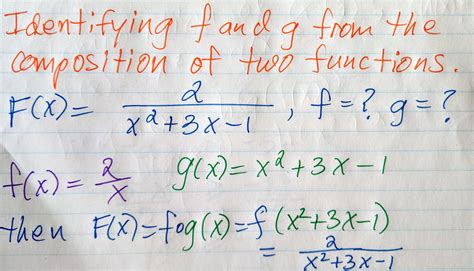 Identifying f and g from the
composition of two functions.
F(x) = 2/(x²+3x-1) , f=? g=?
f(x) = 2/x g(x) = x²+3x-1
then F(x)=fog(x)=f(x²+3x-1)
= 2/(x²+3x-1)